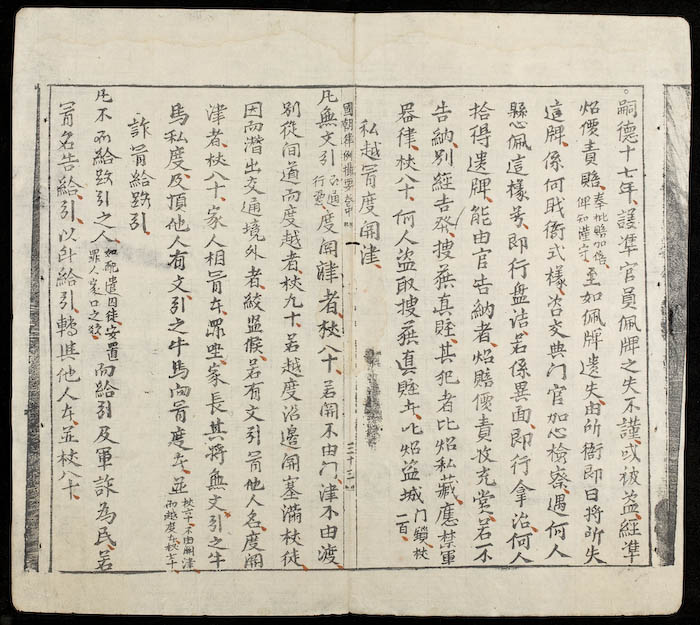 嗣德十七年議準官員佩牌之失不謹或被盜經準
炤價責賠奉批賠加倍俾知謹守至如佩牌遺失由所銜即日將所失
這牌係何戝銜式樣咨交典門官加心檢察遇何人
懸佩這樣等即行盤詰若係異面即行拿治何人
拾得遺牌能由官告納者炤賠價責收充賞若不
告納別經告發搜蔴真贓其犯者比炤私藏應禁軍
器律杖八十何人盜取搜蔴真贓比炤盜城門鎖杖一百
私越冐度關津
國朝律例撮要卷中
三十三
凡無文引度關津者杖八十若關不由門津不由渡
別從间道而度越者杖九十若越度沿邊關塞滿杖徒
因而潛出交通境外者絞監候若有文引冐他人名度關
津者杖八十家人相冐者罪坐家長其將無文引之牛
馬私度及頂他人有文引之牛馬而冐度者並杖六十不由關津而越度者杖七十
詐冐給路引
凡不應給路引之人如配遣囚徒安置罪人家口之類而給引及軍詐為民若
冐名告給引以所給引轉與他人者並杖八十